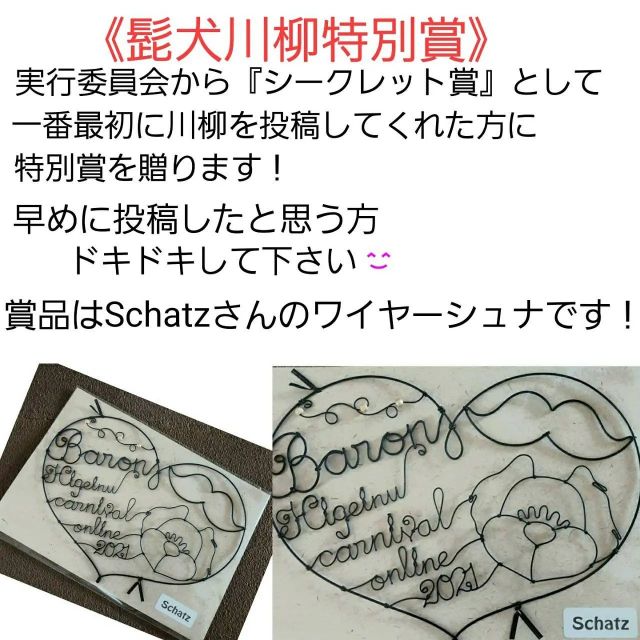 《髭犬川柳特別賞》
実行委員会から『シークレット賞』として
一番最初に川柳を投稿してくれた方に
特別賞を贈ります！
早めに投稿したと思う方
ドキドキして下さい
賞品はSchatzさんのワイヤーシュナです！
Baron's
Higeinu
carnival
online
2021
Schatz
Baron's
Higeinu
carnival
online
2021
Schatz